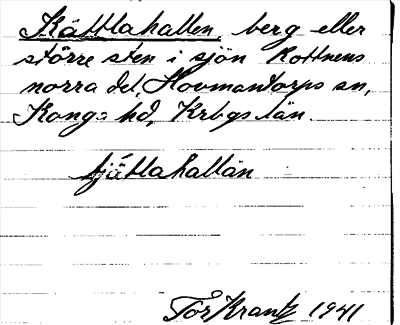 Kättlahallen, berg eller
större sten i sjön Rottnens
norra del, Hovmantorps sn,
Konga hd, Krbgs län.
tjät́lahallän
Tor Krantz 1941